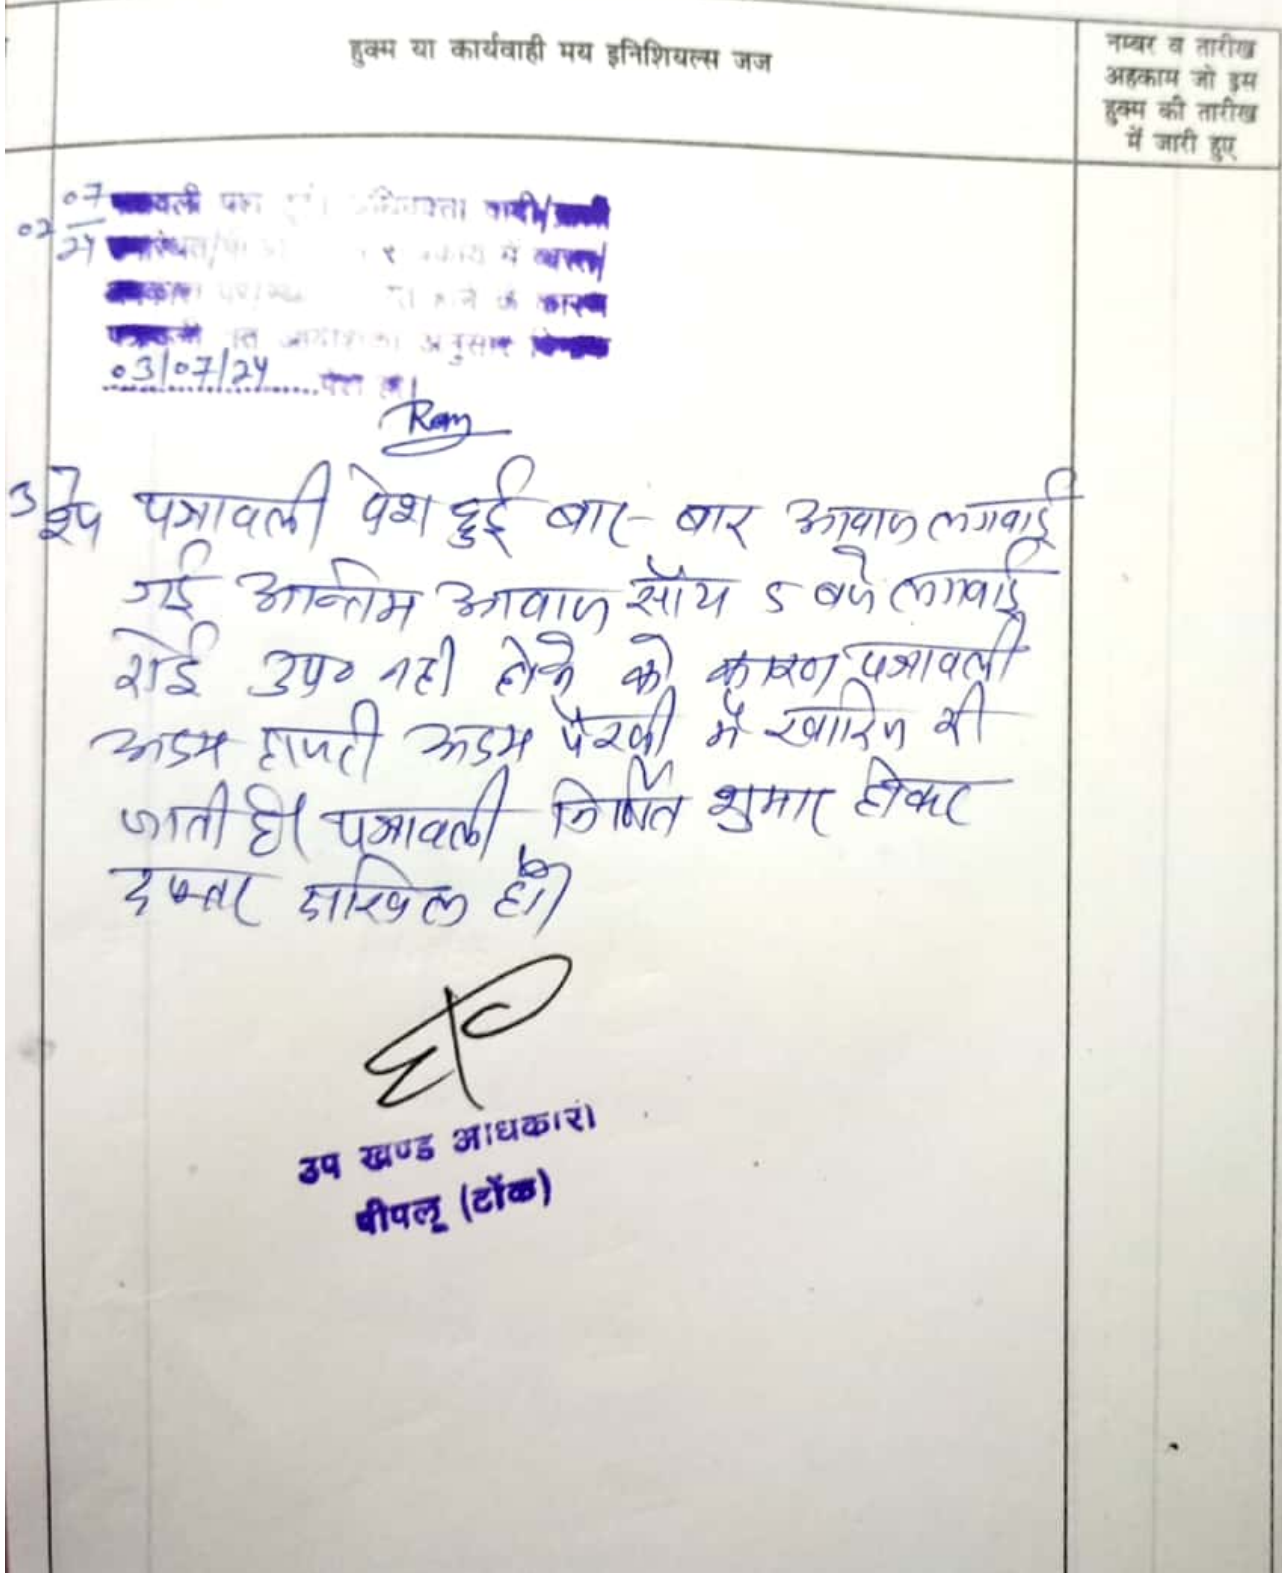 हुक्म या कार्यवाही मय इनिशियल्स जज
नम्बर व तारीख
अहकाम जो इस
हुक्म की तारीख
में जारी हुए
02 07
24
वादी/
में व्यस्त/
होने के कारण
अनुसार
03/07/24 पेश हो।
Ram
3/7/24 पत्रावली पेश हुई बार-बार आवाज लगवाई
गई अन्तिम आवाज साँय 5 बजे लगवाई
कोई उप० नही होने के कारण पत्रावली
अदम हाजरी अदम पैरवी मे खारिज की
जाती है। पत्रावली निर्णित शुमार होकर
दफ्तर दाखिल हो।
उप खण्ड अधिकारी
पीपलू (टोंक)